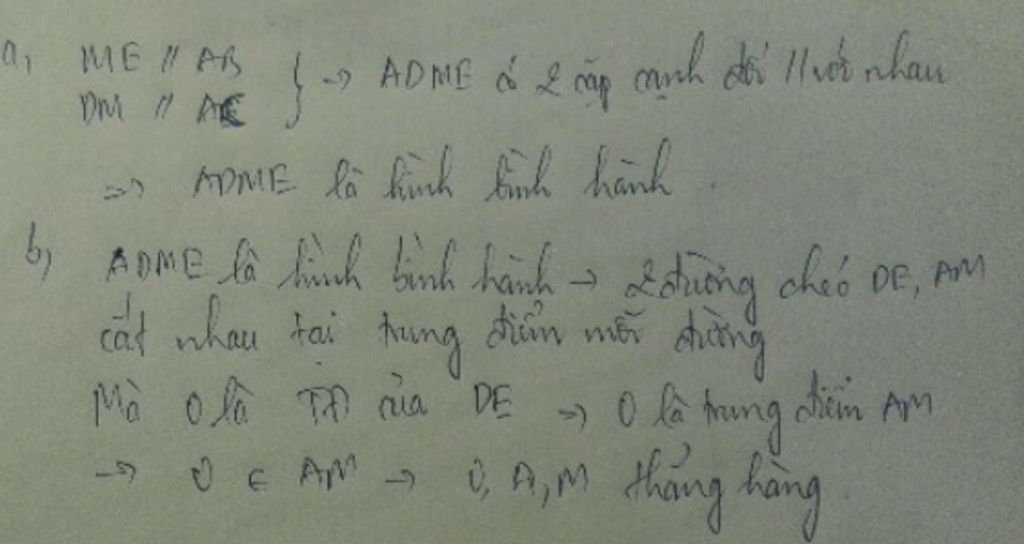 a, ME // AB
DM // AC } → ADME có 2 cặp cạnh đối // với nhau
=> ADME là hình bình hành.
b, ADME là hình bình hành → 2 đường chéo DE, AM
cắt nhau tại trung điểm mỗi đường
Mà O là TĐ của DE => O là trung điểm AM
→ O ∈ AM → O, A, M thẳng hàng.